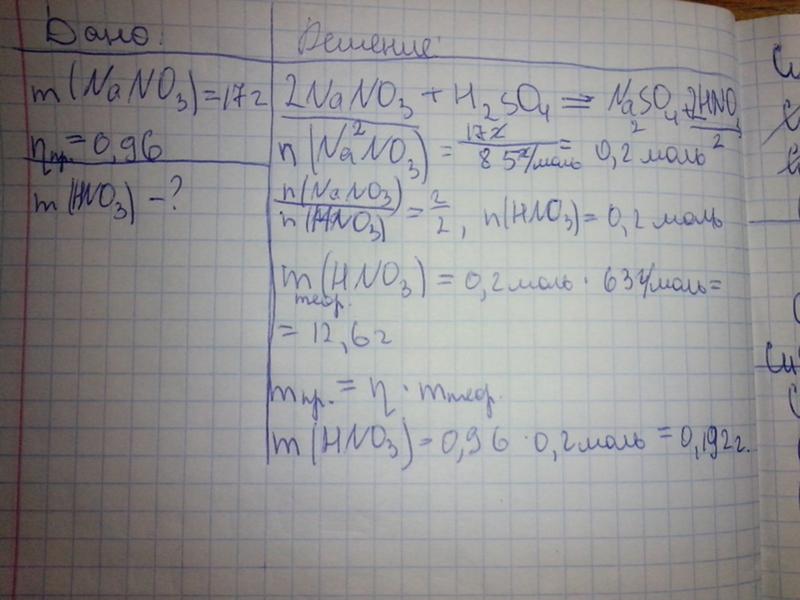 Дано:
m(NaNO₃)=17г
ηпр.=0,96
m(HNO₃)-?
Решение:
2NaNO₃+H₂SO₄=Na₂SO₄+2HNO₃
n(NaNO₃)=17г/85г/моль=0,2моль
n(NaNO₃)/n(HNO₃)=2/2, n(HNO₃)=0,2моль
mтеор.(HNO₃)=0,2моль·63г/моль=
=12,6г
mпр.=η·mтеор.
m(HNO₃)=0,96·0,2моль=0,192г.